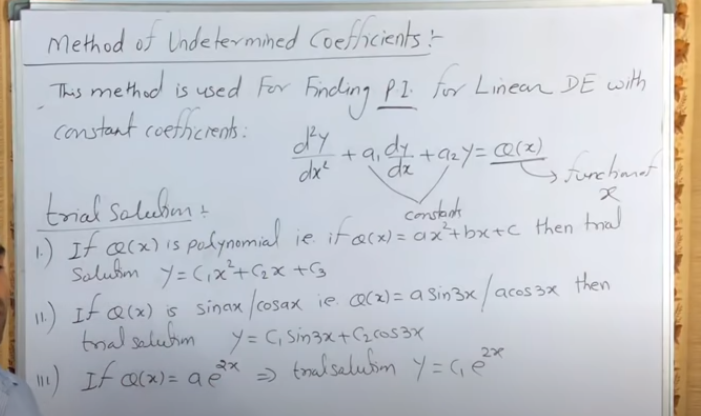 Method of Undetermined Coefficients:-
This method is used For Finding P.I. for Linear DE with
constant coefficients:
d²y/dx² + a₁ dy/dx + a₂y = Q(x)
→ function of x
constants
trial Solution:
I.) If Q(x) is polynomial ie. if Q(x) = ax²+bx+c then trial
Solution y = C₁x²+C₂x+C₃
II.) If Q(x) is sinax/cosax ie. Q(x) = a sin3x/acos3x then
trial solution y = C₁ Sin3x + C₂ cos3x
III) If Q(x) = a e^2x ⇒ trial solution y = C₁ e^2x